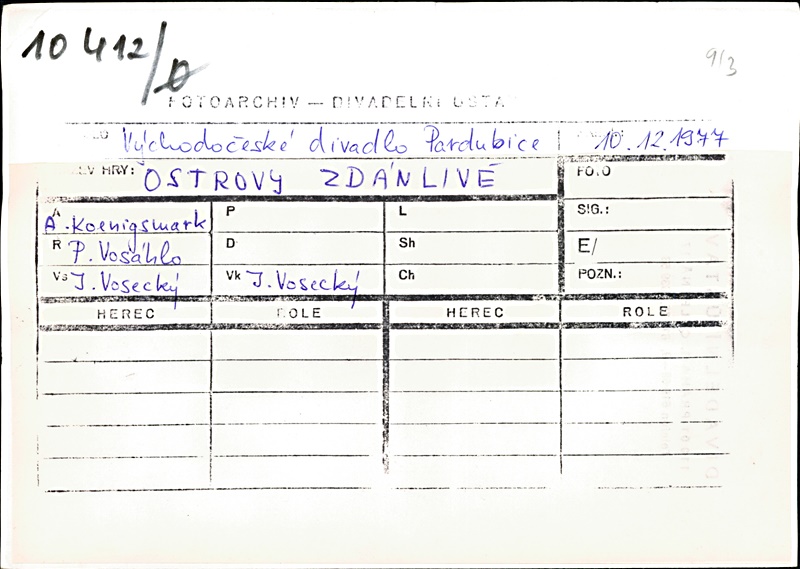 10 412/0
9/3
FOTOARCHIV — DIVADELNÍ ÚSTA
Východočeské divadlo Pardubice 10.12.1977
EV HRY: OSTROVY ZDÁNLIVÉ FOTO
A A. Koenigsmark P L SIG.:
R P. Vošáhlo D Sh E/
Vs J. Vosecký Vk J. Vosecký Ch POZN.:
HEREC ROLE HEREC ROLE